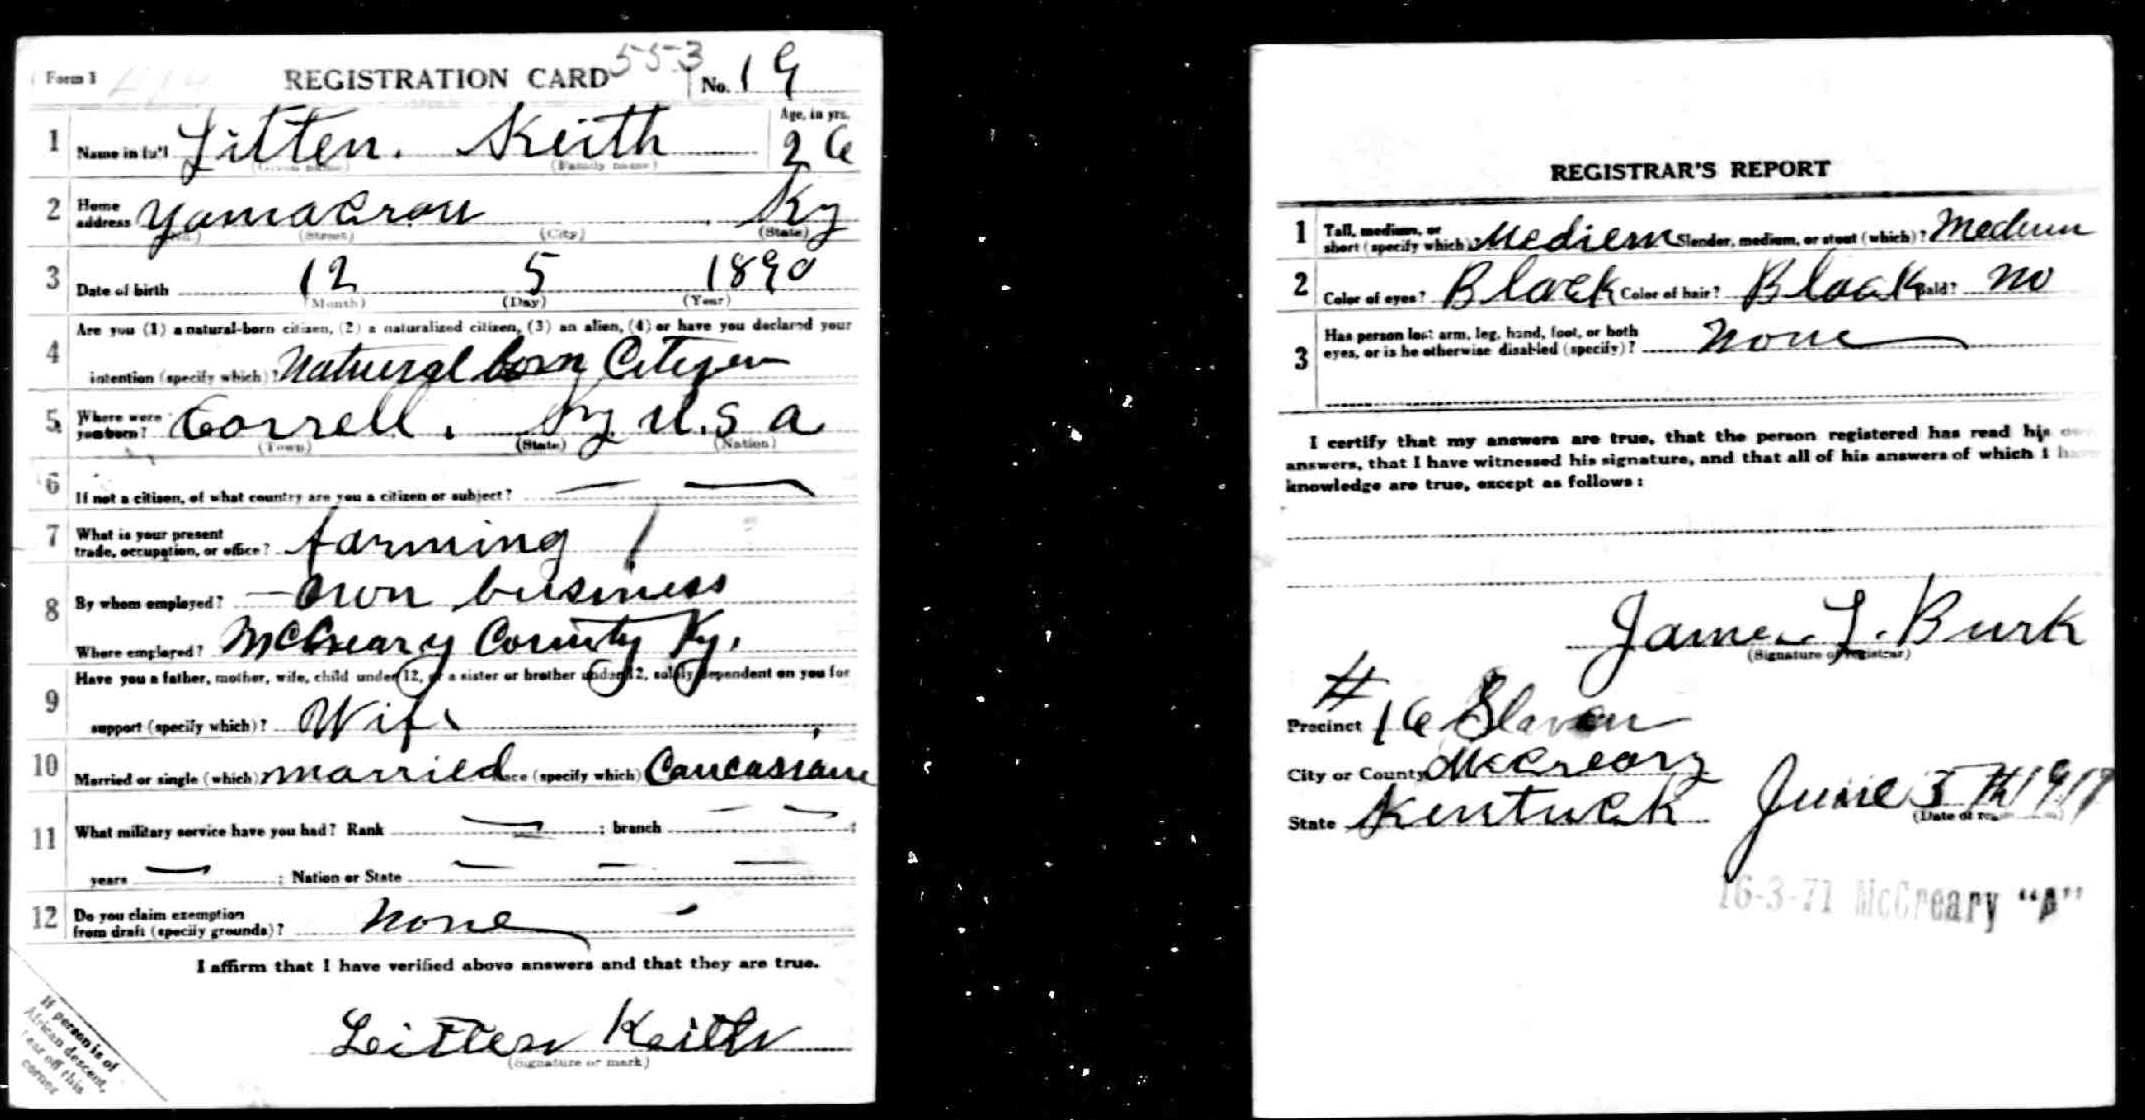 Form 1 REGISTRATION CARD 553 No. 19
1 Name in full Litten. Keith Age, in yrs. 26
(Given name) (Family name)
2 Home address Yamacraw Ky
(No.) (Street) (City) (State)
3 Date of birth 12 5 1890
(Month) (Day) (Year)
4 Are you (1) a natural-born citizen, (2) a naturalized citizen, (3) an alien, (4) or have you declared your
intention (specify which)? Natueral born Citizen
5 Where were you born? Correll. Ky U.S a
(Town) (State) (Nation)
6 If not a citizen, of what country are you a citizen or subject? — —
7 What is your present trade, occupation, or office? farming 1
8 By whom employed? — Own business
Where employed? McCreary County Ky.
9 Have you a father, mother, wife, child under 12, or a sister or brother under 12, solely dependent on you for
support (specify which)? Wife
10 Married or single (which) married Race (specify which) Caucasian
11 What military service have you had? Rank — ; branch — ;
years — ; Nation or State —
12 Do you claim exemption from draft (specify grounds)? None
I affirm that I have verified above answers and that they are true.
Litten Keith
(Signature or mark)
If person is of
African descent,
tear off this
corner
REGISTRAR'S REPORT
1 Tall, medium, or short (specify which)? Medium Slender, medium, or stout (which)? Medium
2 Color of eyes? Black Color of hair? Black Bald? No
3 Has person lost arm, leg, hand, foot, or both
eyes, or is he otherwise disabled (specify)? None
I certify that my answers are true, that the person registered has read his own
answers, that I have witnessed his signature, and that all of his answers of which I have
knowledge are true, except as follows:
James L. Burk
(Signature of registrar)
Precinct # 16 Slaven
City or County McCreary
State Kentuck June 5th 1917
(Date of registration)
16-3-71 McCreary "A"